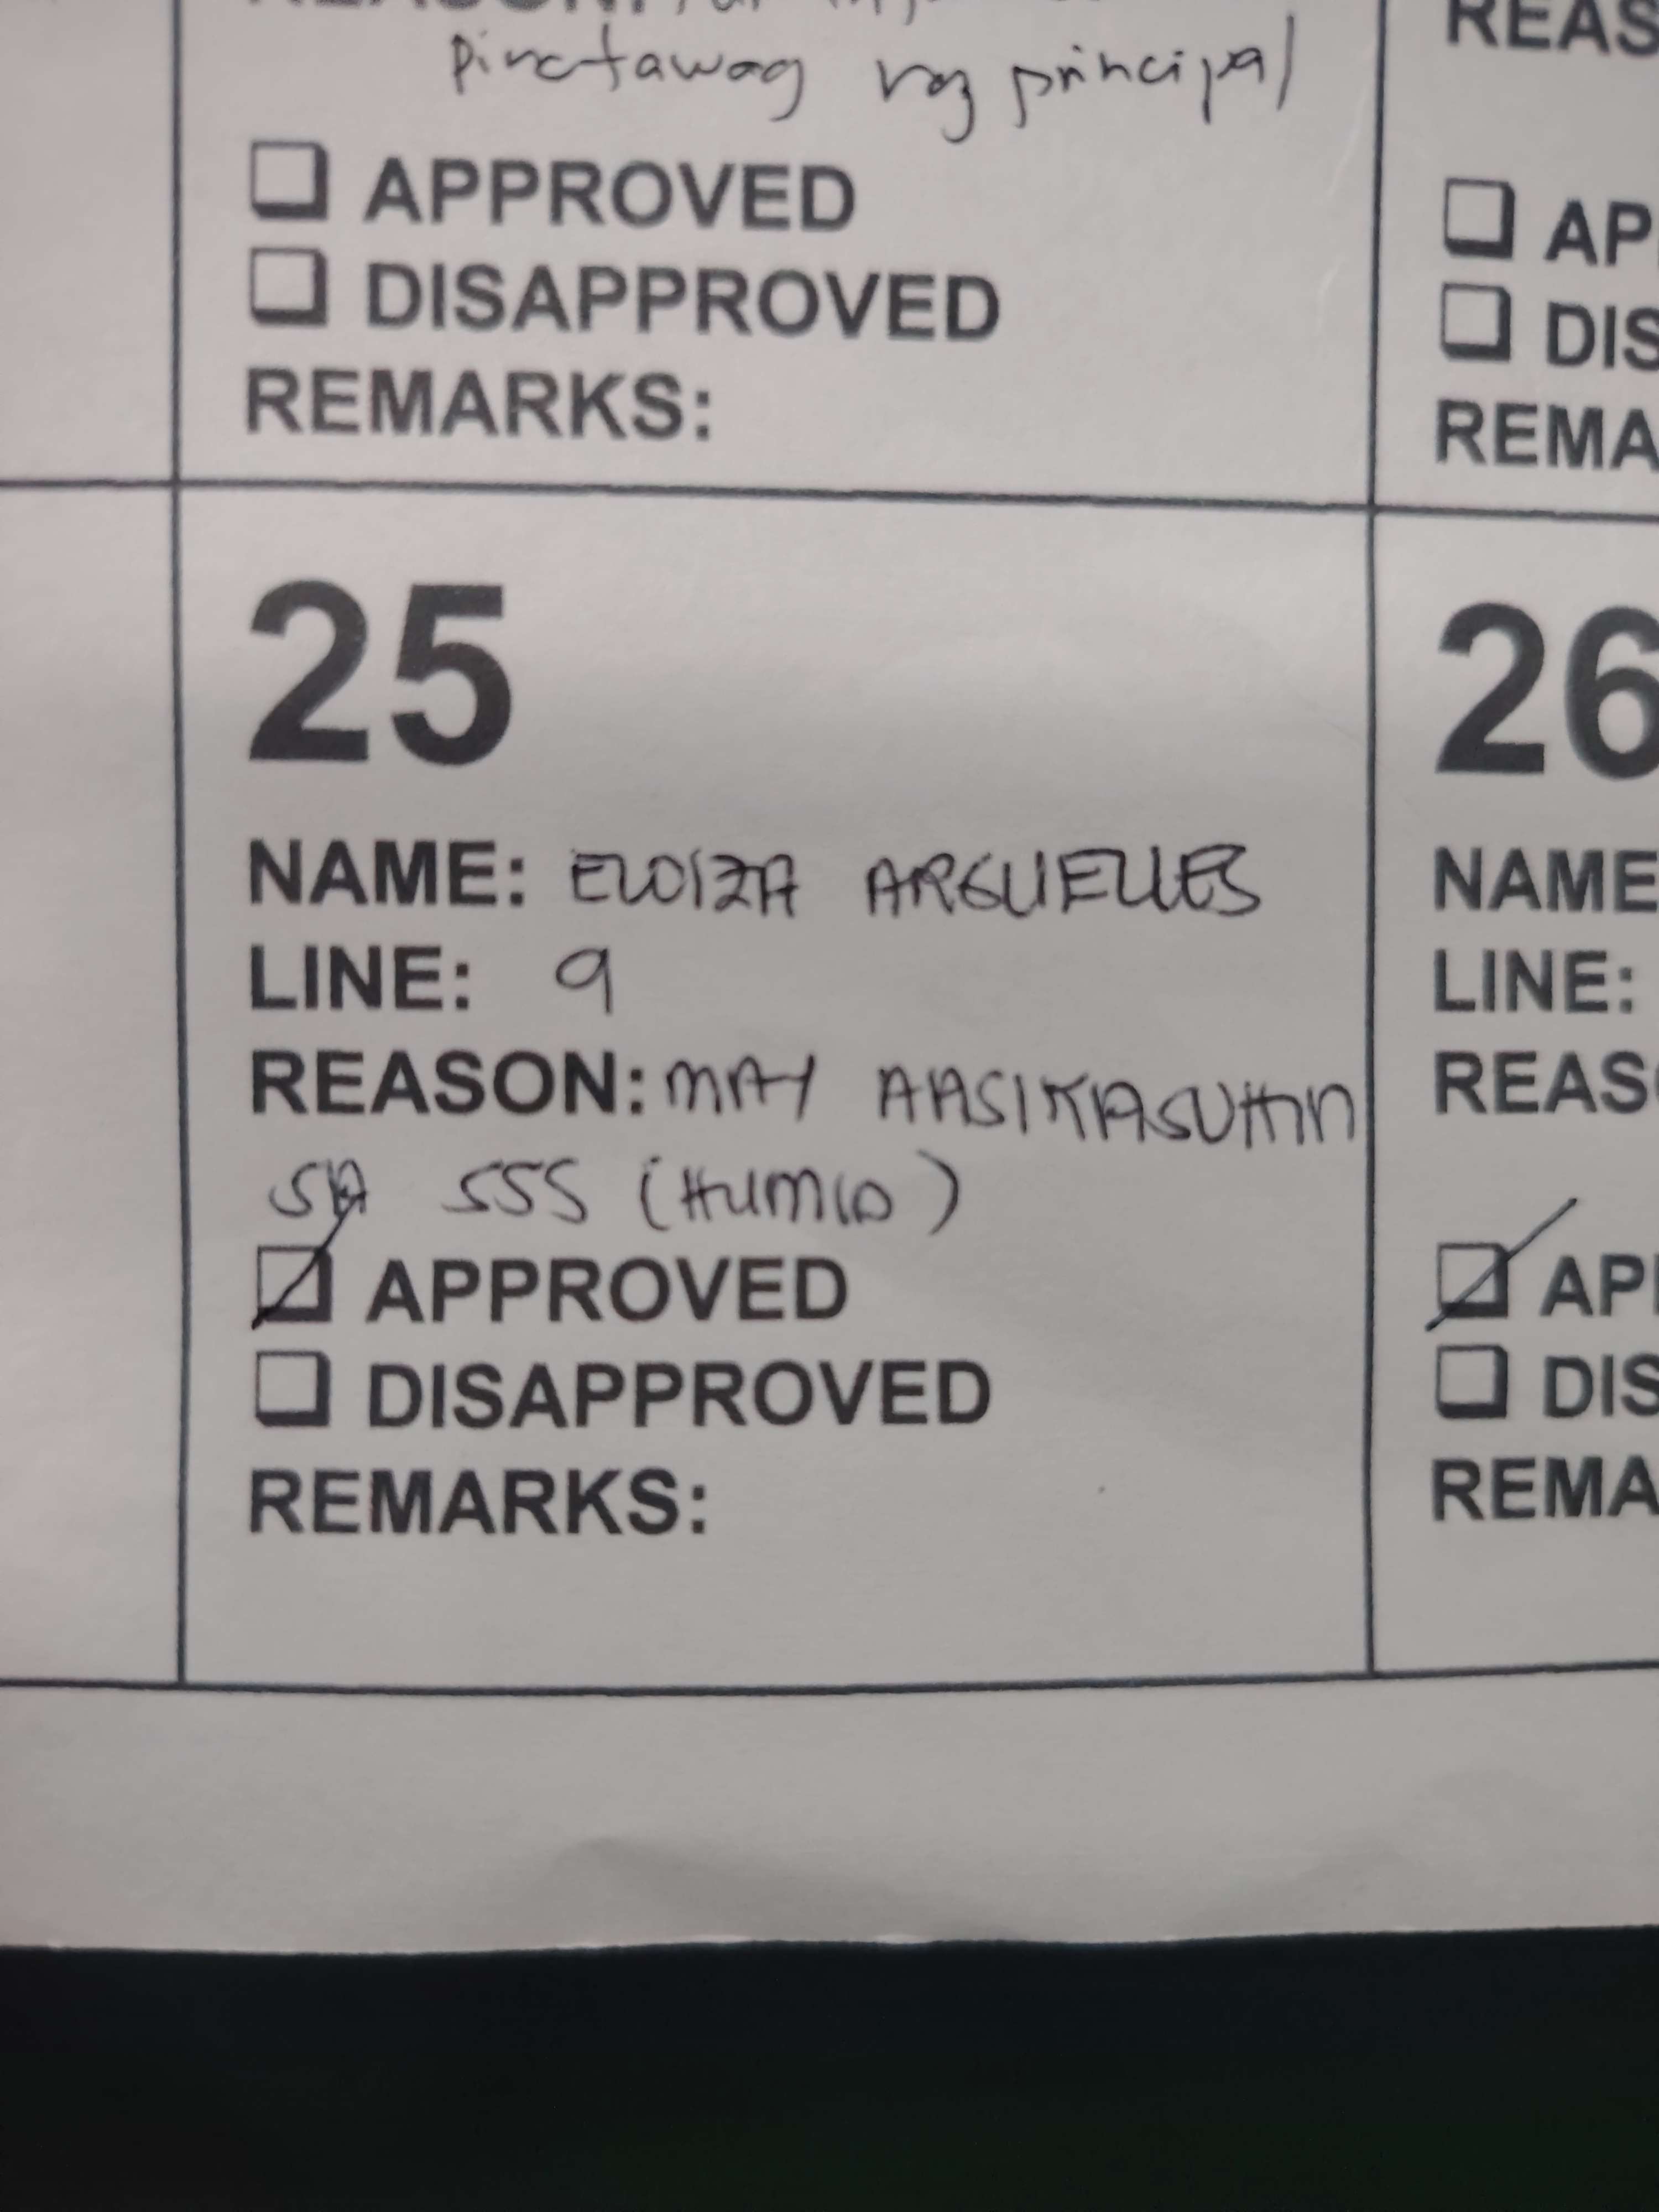 pinatawag ng principal
REAS
❏ APPROVED
❏ DISAPPROVED
REMARKS:
❏ AP
❏ DIS
REMA
25
NAME: ELOIZA ARGUELLES
LINE: 9
REASON: MAY AASIKASUHIN
SA SSS (HUMID)
☑ APPROVED
❏ DISAPPROVED
REMARKS:
26
NAME
LINE:
REAS
☑ AP
❏ DIS
REMA